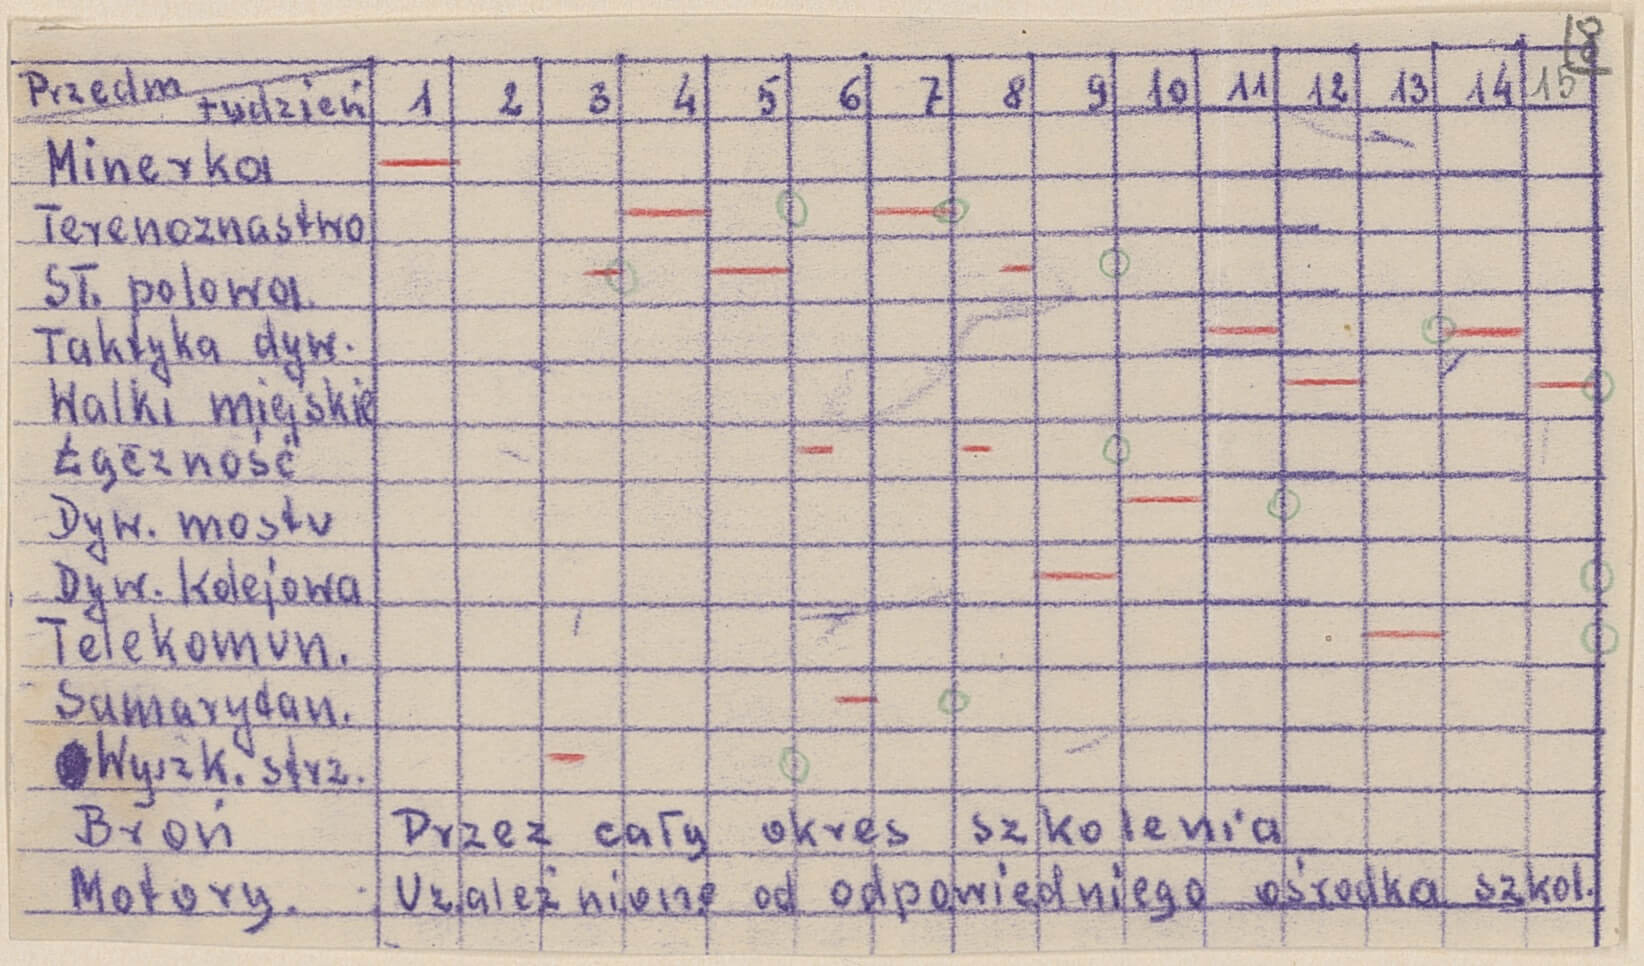 18
Przedm tydzień 1 2 3 4 5 6 7 8 9 10 11 12 13 14 15
Minerka
Terenoznastwo
Sł. polowa.
Taktyka dyw.
Walki miejskie
Łączność
Dyw. mostu
Dyw. kolejowa
Telekomun.
Samarytan.
Wyszk. strz.
Broń Przez cały okres szkolenia
Motory. Uzależnione od odpowiedniego ośrodka szkol.